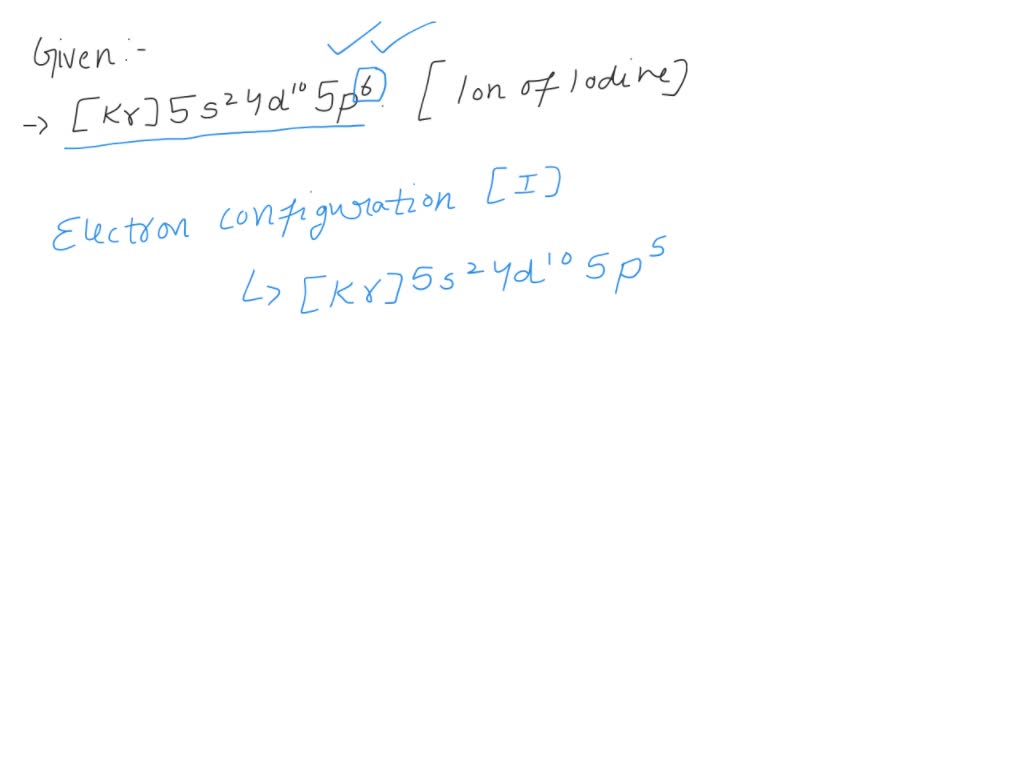 Given :-
→ [Kr] 5s² 4d¹⁰ 5p⁶ [Ion of Iodine]
Electron configuration [I]
↳ [Kr] 5s² 4d¹⁰ 5p⁵